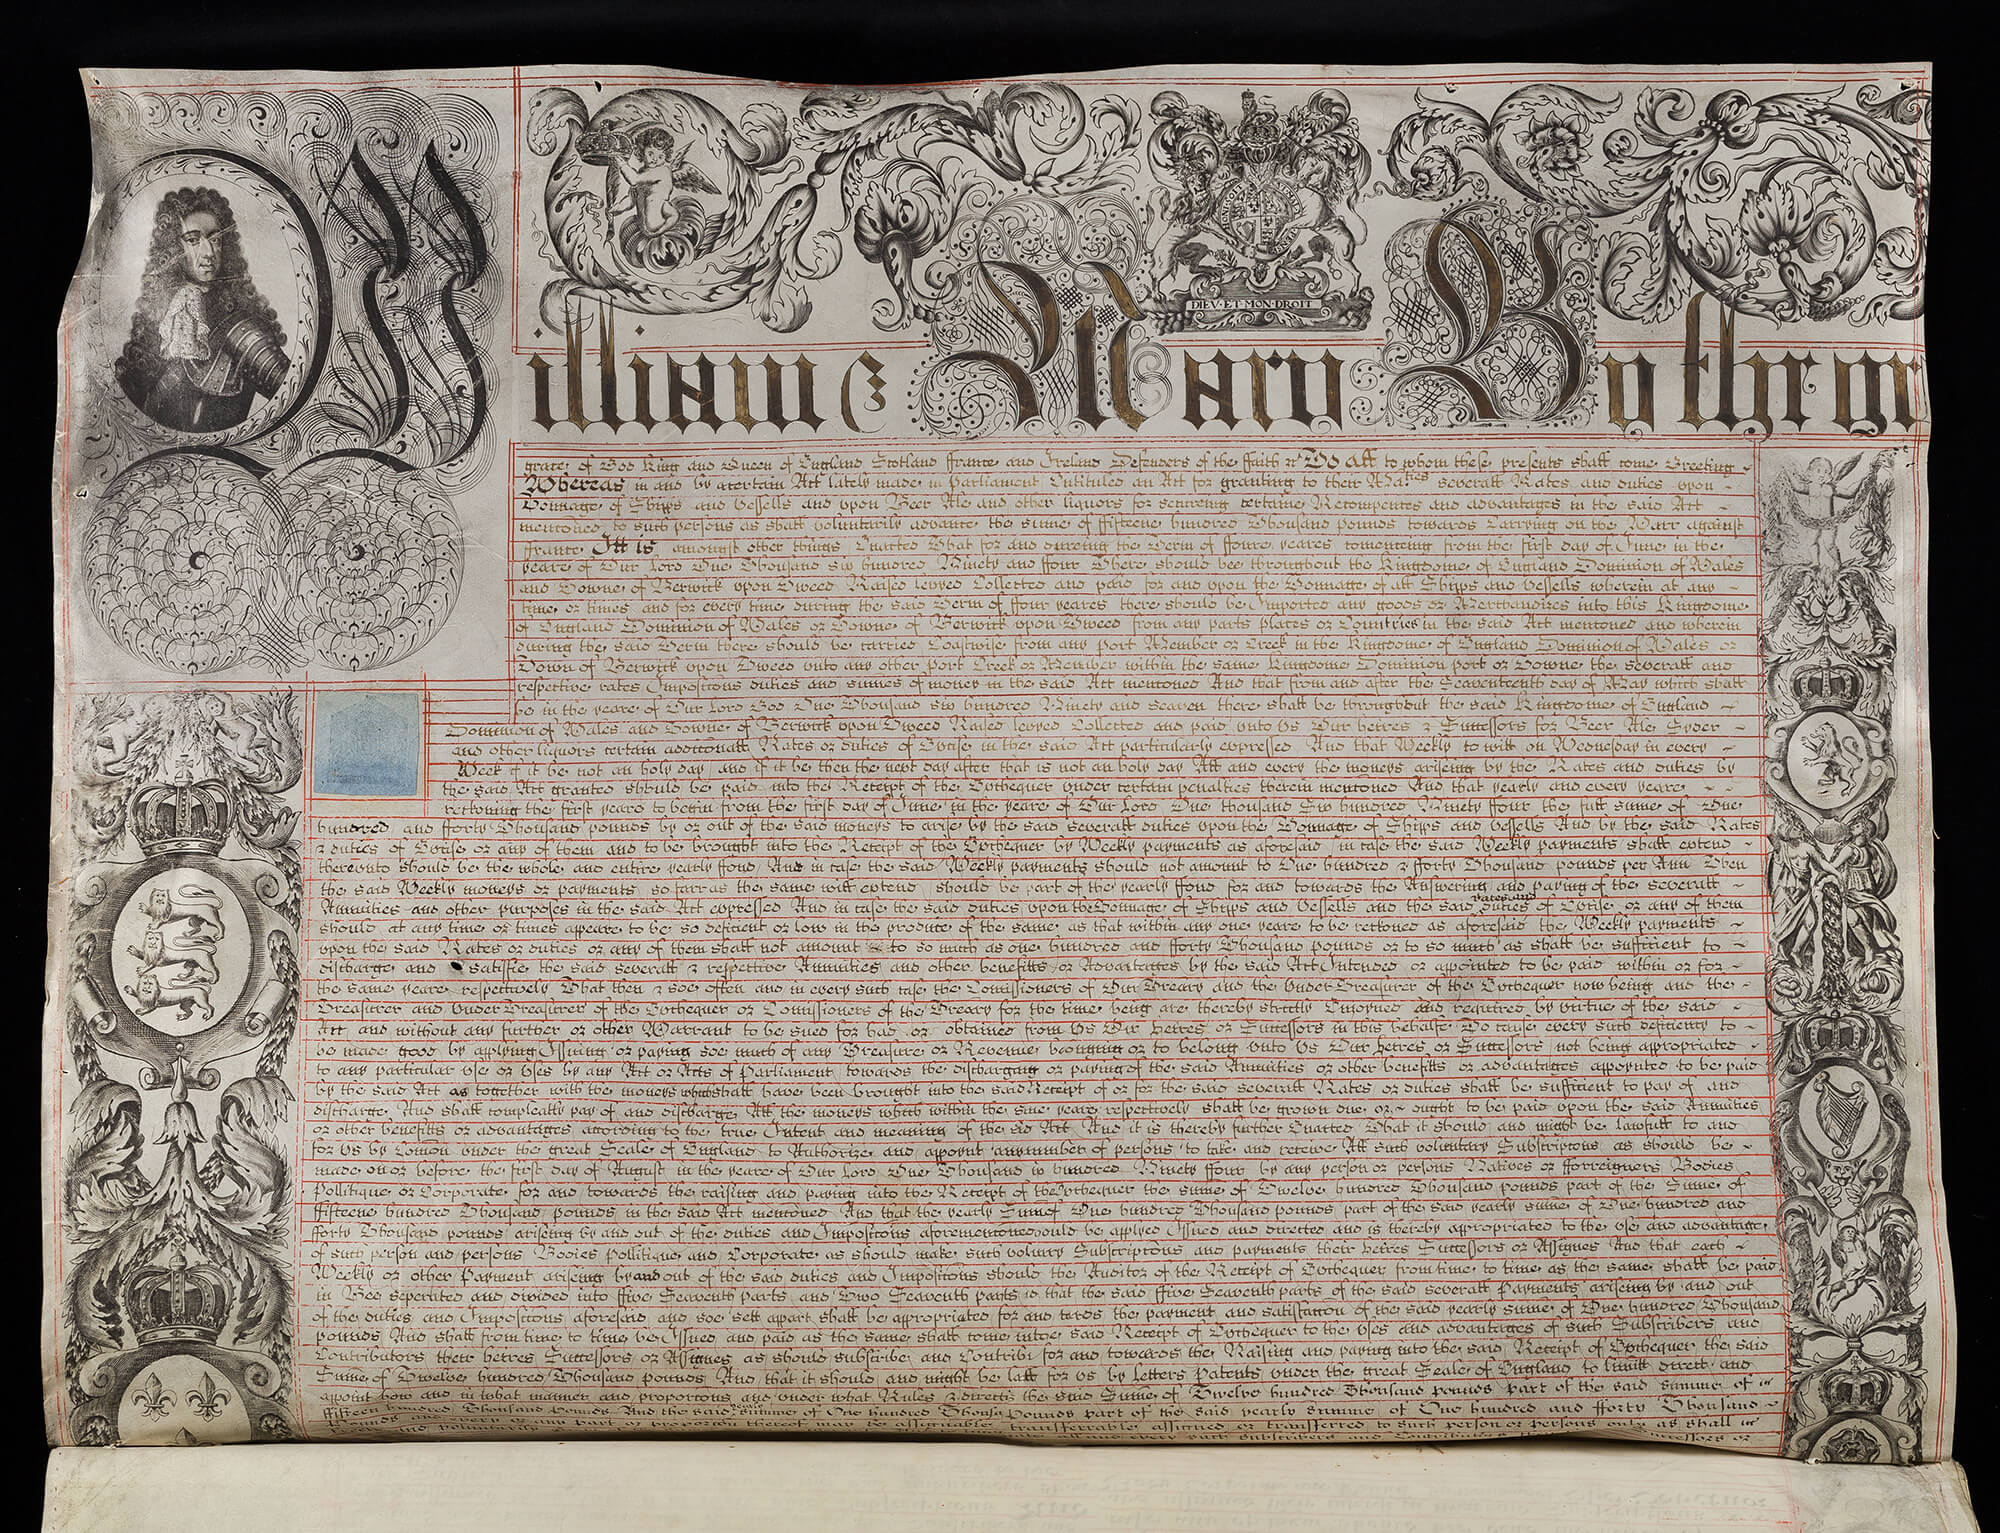 William & Mary By the gr
DIEV·ET·MON·DROIT
grace of God King and Queen of England Scotland ffrance and Ireland Defenders of the ffaith &c To All to whom these presents shall come Greeting
Whereas in and by a certain Act lately made in Parliament Entituled an Act for granting to their Maties severall Rates and duties upon
Tonnage of Shipps and Vessells and upon Beer Ale and other liquors for secureing certaine Recompences and advantages in the said Act
mentoned to such persons as shall voluntarily advance the sume of fifteene hundred Thousand pounds towards Carrying on the Warr against
ffrance Itt is amongst other things Enacted That for and dureing the Term of foure yeares comencing from the first day of June in the
yeare of Our Lord One Thousand six hundred Ninety and four There should bee throughout the Kingdome of England Dominion of Wales
and Towne of Berwick upon Tweed Raised levyed Collected and paid for and upon the Tonnage of all Shipps and Vessells wherein at any
time or times and for every time during the said Term of ffour yeares there should be Imported any goods or Merchandizes into this Kingdome
of England Dominion of Wales or Towne of Berwick upon Tweed from any parts places or Countries in the said Act mentoned and wherein
during the said Term there should be carried Coastwise from any port Member or Creek in the Kingdome of England Dominion of Wales or
Town of Berwick upon Tweed unto any other port Creek or Member within the same Kingdome Dominion port or Towne the severall and
respective rates Impositons duties and sumes of money in the said Act mentoned And that from and after the Seaventeenth day of May which shall
be in the yeare of Our Lord God One Thousand six hundred Ninety and seaven there shall be throughout the said Kingdome of England
Dominion of Wales and Towne of Berwick upon Tweed Raised levyed Collected and paid unto Us Our heires & Successors for Beer Ale Cyder
and other liquors certain additonall Rates or duties of Excise in the said Act particularly expressed And that Weekly to witt on Wednesday in every
Week if it be not an holy day and if it be then the next day after that is not an holy day All and every the moneys ariseing by the Rates and duties by
the said Act granted should be paid into the Receipt of the Exchequer under certain penalties therein mentoned And that yearly and every yeare
reckoning the first yeare to begin from the first day of June in the yeare of Our Lord One thousand Six hundred Ninety ffour the full sume of One
hundred and fforty Thousand pounds by or out of the said moneys to arise by the said severall duties upon the Tonnage of Shipps and Vessells And by the said Rates
& duties of Excise or any of them and to be brought into the Receipt of the Exchequer by Weekly payments as aforesaid in case the said Weekly payments shall extend
thereunto should be the whole and entire yearly ffond And in case the said Weekly payments should not amount to One hundred & fforty Thousand pounds per Ann Then
the said Weekly moneys or payments so farr as the same will extend should be part of the yearly ffond for and towards the Answering and paying of the severall
Annuities and other purposes in the said Act expressed And in case the said duties upon the Tonnage of Shipps and Vessells and the said rates and duties of Excise or any of them
should at any time or times appeare to be so deficient or low in the produce of the same as that within any one yeare to be reckoned as aforesaid the Weekly payments
upon the said Rates or duties or any of them shall not amount to so much as one hundred and fforty Thousand pounds or to so much as shall be sufficient to
discharge and satisfie the said severall & respective Annuities and other benefitts or Advantages by the said Act Intended or appointed to be paid within or for
the same yeare respectively That then & soe often and in every such case the Comissioners of Our Treary and the Under Treasurer of the Exchequer now being and the
Treasurer and Under Treasurer of the Exchequer or Comissioners of the Treary for the time being are thereby strictly Enjoyned and required by virtue of the said
Act and without any further or other Warrant to be sued for had or obtained from Us Our heires or Successors in this behalfe To cause every such deficiency to
be made good by applying Issuing or paying soe much of any Treasure or Revenue belonging or to belong unto Us Our heires or Successors not being appropriated
to any particular Use or Uses by any Act or Acts of Parliament towards the discharging or paying of the said Annuities or other benefitts or advantages appointed to be paid
by the said Act as together with the moneys which shall have been brought into the said Receipt of or for the said severall Rates or duties shall be sufficient to pay of and
discharge And shall compleatly pay of and discharge All the moneys which within the same yeare respectively shall be grown due or ought to be paid upon the said Annuities
or other benefitts or advantages according to the true Intent and meaning of the sid Act And it is thereby further Enacted That it should and might be lawfull to and
for Us by Comon under the great Seale of England to Authorize and appoynt any number of persons to take and receive All such voluntary Subscriptons as should be
made on or before the first day of August in the yeare of Our Lord One Thousand ix hundred Ninety ffour by any person or persons Natives or fforreigners Bodies
Pollitique or Corporate for and towards the raising and paying into the Receipt of the Exchequer the sume of Twelve hundred Thousand pounds part of the Sume of
ffifteene hundred Thousand pounds in the said Act mentoned And that the yearly Sume of One hundred Thousand pounds part of the said yearly sume of One hundred and
fforty Thousand pounds ariseing by and out of the duties and Impositons aforementoned should be applyed Issued and directed and is thereby appropriated to the use and advantage
of such person and persons Bodies Pollitique and Corporate as should make such volunry Subscriptons and payments their heires Successors or Assignes And that each
Weekly or other Payment ariseing by and out of the said duties and Impositons should the Auditor of the Receipt of Exchequer from time to time as the same shall be paid
in Bee seperated and divided into ffive Seaventh parts and Two Seaventh parts is that the said ffive Seaventh parts of the said severall Payments ariseing by and out
of the duties and Impositons aforesaid and soe sett apart shall be appropriated for and tords the payment and satisfaction of the said yearly sume of One hundred Thousand
pounds And shall from time to time be Issued and paid as the same shall come into said Receipt of Exchequer to the uses and advantages of such Subscribers and
Contributors their heires Successors or Assignes as should subscribe and Contribi for and towards the Raising and paying into the said Receipt of Exchequer the said
Sume of Twelve hundred Thousand pounds And that it should and might be lafl for Us by Letters Patents under the great Seale of England to limitt direct and
appoint how and in what manner and proportons and under what Rules & directns the said Sume of Twelve hundred Thousand pounds part of the said summe of
ffifteen hundred Thousand pounds And the said yearly summe of One hundred Thousa pounds part of the said yearly summe of One hundred and fforty Thousand
Pounds and every or any part or proporton thereof may be assignable transferrable assigned or transferred to such person or persons only as shall
all and every such Subscribers and Contributors Successors or